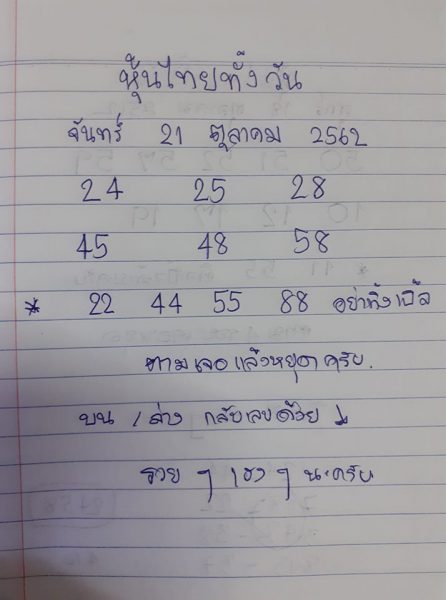 หุ้นไทยทั้งวัน
จันทร์ 21 ตุลาคม 2562
24 25 28
45 48 58
* 22 44 55 88 อย่าทิ้งเบิ้ล
ตามเจอแล้วหยุดครับ.
บน / ล่าง กลับเลขด้วย
รวย ๆ เฮง ๆ นะครับ